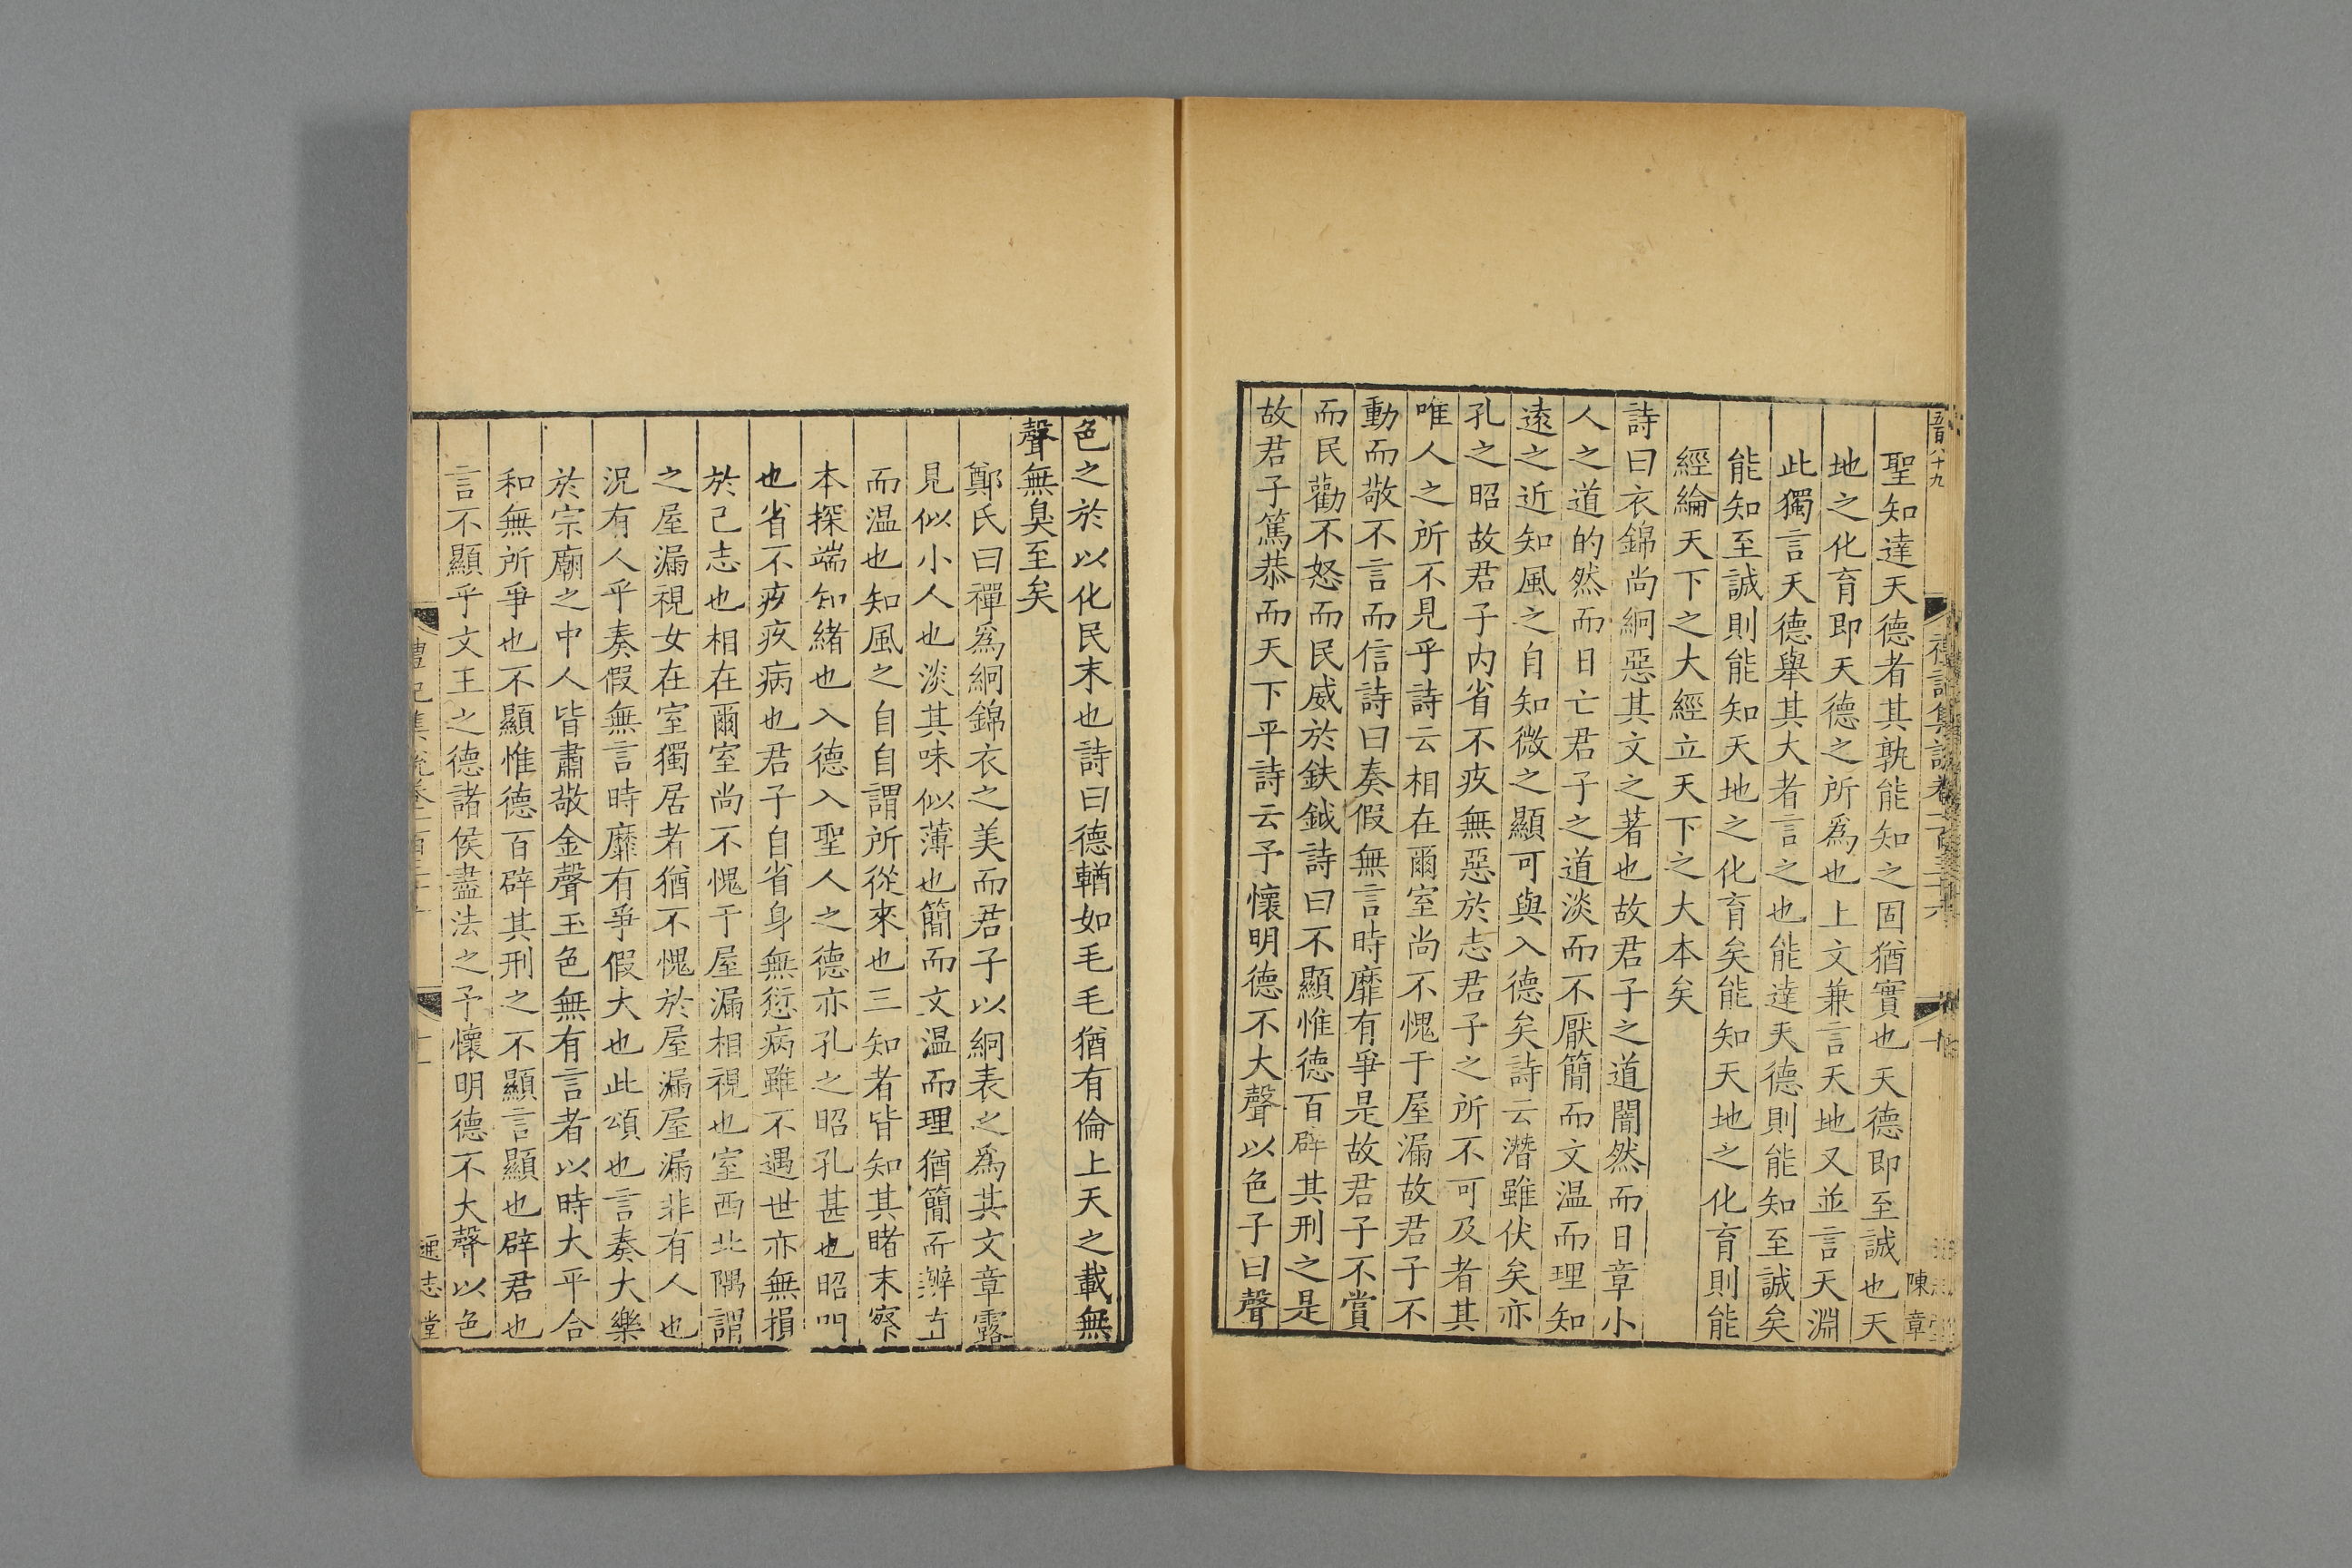 聖知達天德者其孰能知之固猶實也天德即至誠也天
地之化育即天德之所爲也上文兼言天地又並言天淵
此獨言天德舉其大者言之也能達天德則能知至誠矣
能知至誠則能知天地之化育矣能知天地之化育則能
經綸天下之大經立天下之大本矣
詩曰衣錦尚絅惡其文之著也故君子之道闇然而日章小
人之道的然而日亡君子之道淡而不厭簡而文温而理知
遠之近知風之自知微之顯可與入德矣詩云潛雖伏矣亦
孔之昭故君子内省不疚無惡於志君子之所不可及者其
唯人之所不見乎詩云相在爾室尚不愧于屋漏故君子不
動而敬不言而信詩曰奏假無言時靡有爭是故君子不賞
而民勸不怒而民威於鈇鉞詩曰不顯惟德百辟其刑之是
故君子篤恭而天下平詩云予懷明德不大聲以色子曰聲
色之於以化民末也詩曰德輶如毛毛猶有倫上天之載無
聲無臭至矣
鄭氏曰禪爲絅錦衣之美而君子以絅表之爲其文章露
見似小人也淡其味似薄也簡而文温而理猶簡而辨直
而温也知風之自自謂所從來也三知者皆知其睹末察
本探端知緒也入德入聖人之德亦孔之昭孔甚也昭明
也省不疚疚病也君子自省身無愆病雖不遇世亦無損
於己志也相在爾室尚不愧于屋漏相視也室西北隅謂
之屋漏視女在室獨居者猶不愧於屋漏屋漏非有人也
況有人乎奏假無言時靡有爭假大也此頌也言奏大樂
於宗廟之中人皆肅敬金聲玉色無有言者以時大平合
和無所爭也不顯惟德百辟其刑之不顯言顯也辟君也
言不顯乎文王之德諸侯盡法之予懷明德不大聲以色
陳章
通志堂